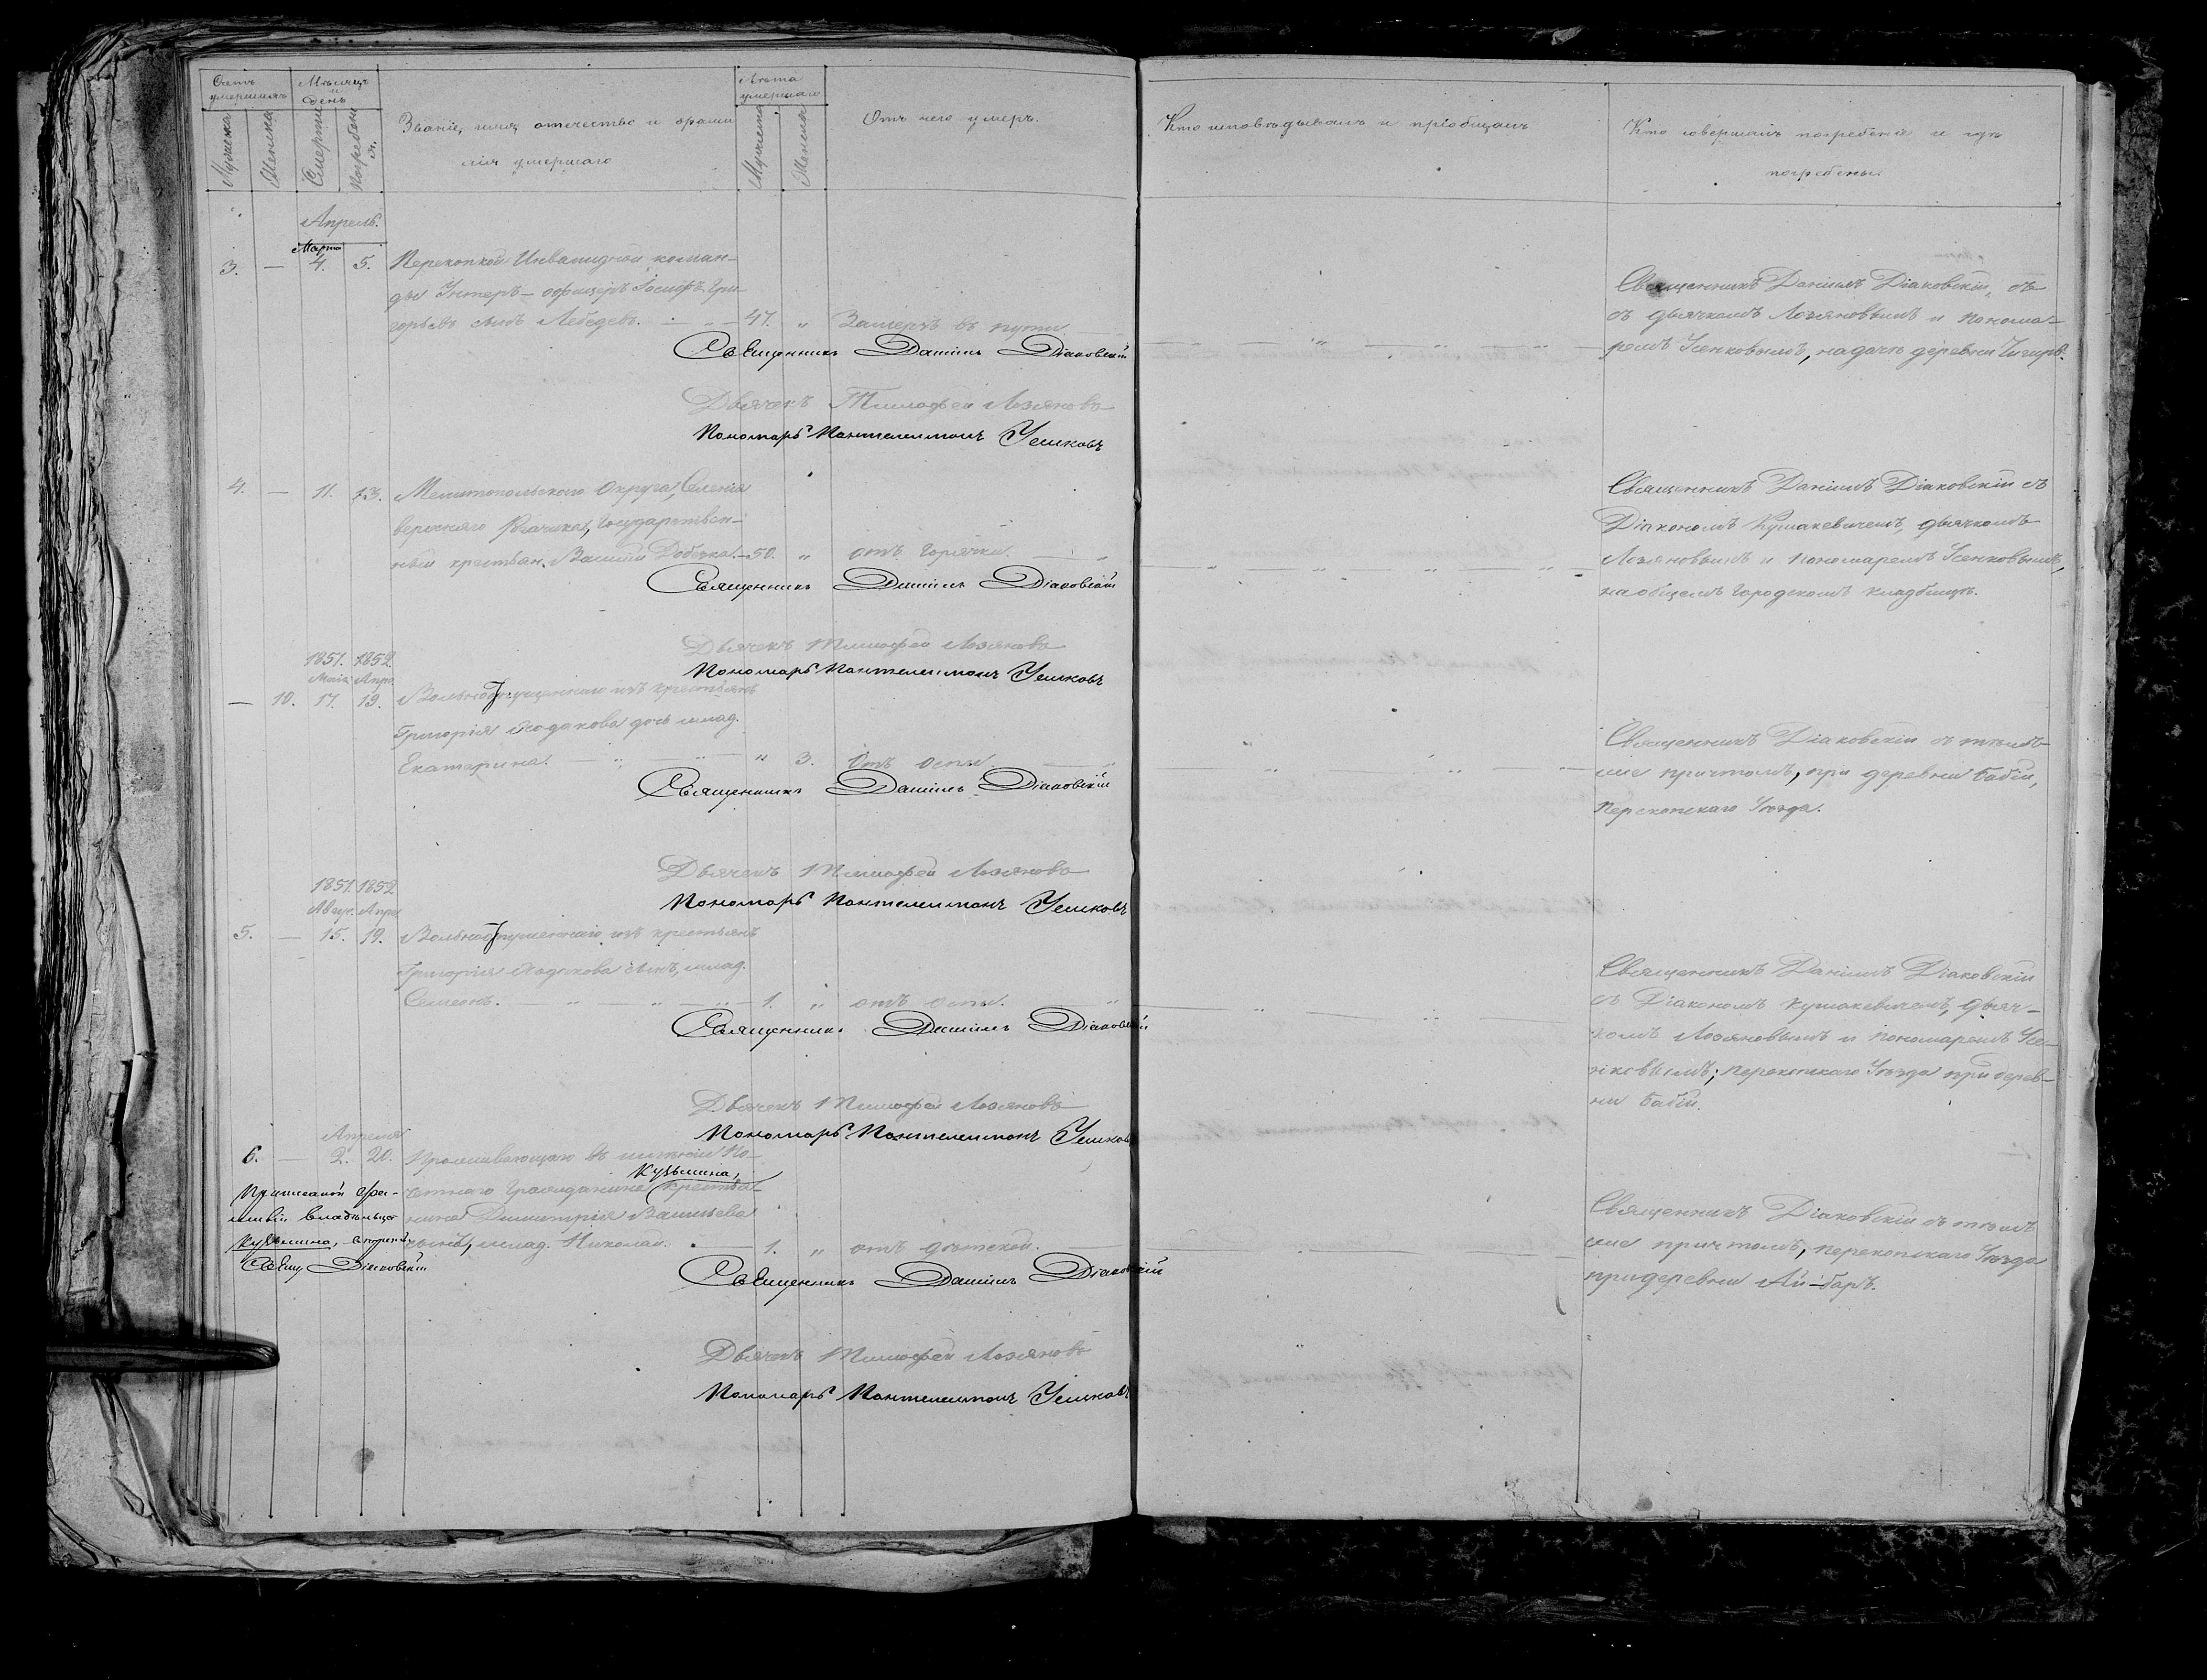 Счетъ умершихъ
Мѣсяцъ и день
Званіе, имя, отчество и фами-
лія умершаго
Лѣта умершаго
Отъ чего умеръ.
Кто исповѣдывалъ и пріобщалъ
Кто совершалъ погребеніе и гдѣ
погребены.
Мужеска
Женска
Смерти
Погребенія
Мужеска
Женска
Апрель.
Марта
3. — 4. 5. Перекопкой Инвалидной коман-
ды Унтеръ-офицеръ Іосифъ Гри-
горьевъ сынъ Лебедевъ. — „ — 47. „ Замерзъ въ пути
Священникъ Даніилъ Діаковскій
Дьячекъ Тимофей Лозяновъ
Пономарь Пантелеимонъ Усенковъ
Священникъ Даніилъ Діаковскій, съ
съ дьячкомъ Лозяновымъ и понома-
ремъ Усенковымъ, на дачѣ деревни
4. — 11. 13. Мелитопольскаго Округа, Селенія
верхняго Рогачика, Государствен-
ный крестьян. Василій — 50. „ отъ горячки. — „
Священникъ Даніилъ Діаковскій
Дьячекъ Тимофей Лозяновъ
Пономарь Пантелеимонъ Усенковъ
Священникъ Даніилъ Діаковскій съ
Діакономъ Кушакевичемъ, дьячкомъ
Лозяновымъ и пономаремъ Усенковымъ,
на общемъ городскомъ кладбищѣ.
1851. 1852
Маія Апр.
— 10. 17. 19. Вольноотпущеннаго изъ крестьянъ
Григорія Ходакова дочь млад.
Екатерина. — „ — „ 3. Отъ оспы. — „
Священникъ Даніилъ Діаковскій
Дьячекъ Тимофей Лозяновъ
Пономарь Пантелеимонъ Усенковъ
Священникъ Діаковскій съ тѣмъ-
же причтомъ, при деревни Бабіи,
Перекопскаго Уѣзда.
1851. 1852
Авгус. Апре
5. — 15. 19. Вольноотпущеннаго изъ крестьянъ
Григорія Ходакова сынъ, млад.
Семеонъ. — „ — „ — „ — 1. „ отъ оспы. — „
Священникъ Даніилъ Діаковскій
Дьячекъ Тимофей Лозяновъ
Пономарь Пантелеимонъ Усенковъ
Священникъ Даніилъ Діаковскій
съ Діакономъ Кушакевичемъ, дьяч-
комъ Лозяновымъ и пономаремъ Усе-
нковымъ; перекопскаго Уѣзда при дерев-
ни Бабіи.
Апреля
6. — 2. 20. Проживающаго въ имѣніи По-
Кузьмина,
четнаго Гражданина крестья-
нина Димитрія Васильева
сынъ, млад. Николай. — 1. „ отъ дѣтской.
Приписаной фа-
миліи владѣльца
Кузьмина,
Свящ Діаковскій
Священникъ Даніилъ Діаковскій
Дьячекъ Тимофей Лозяновъ
Пономарь Пантелеимонъ Усенковъ
Священникъ Діаковскій съ тѣмъ
же причтомъ, перекопскаго Уѣзда
при деревни Ай-баръ.